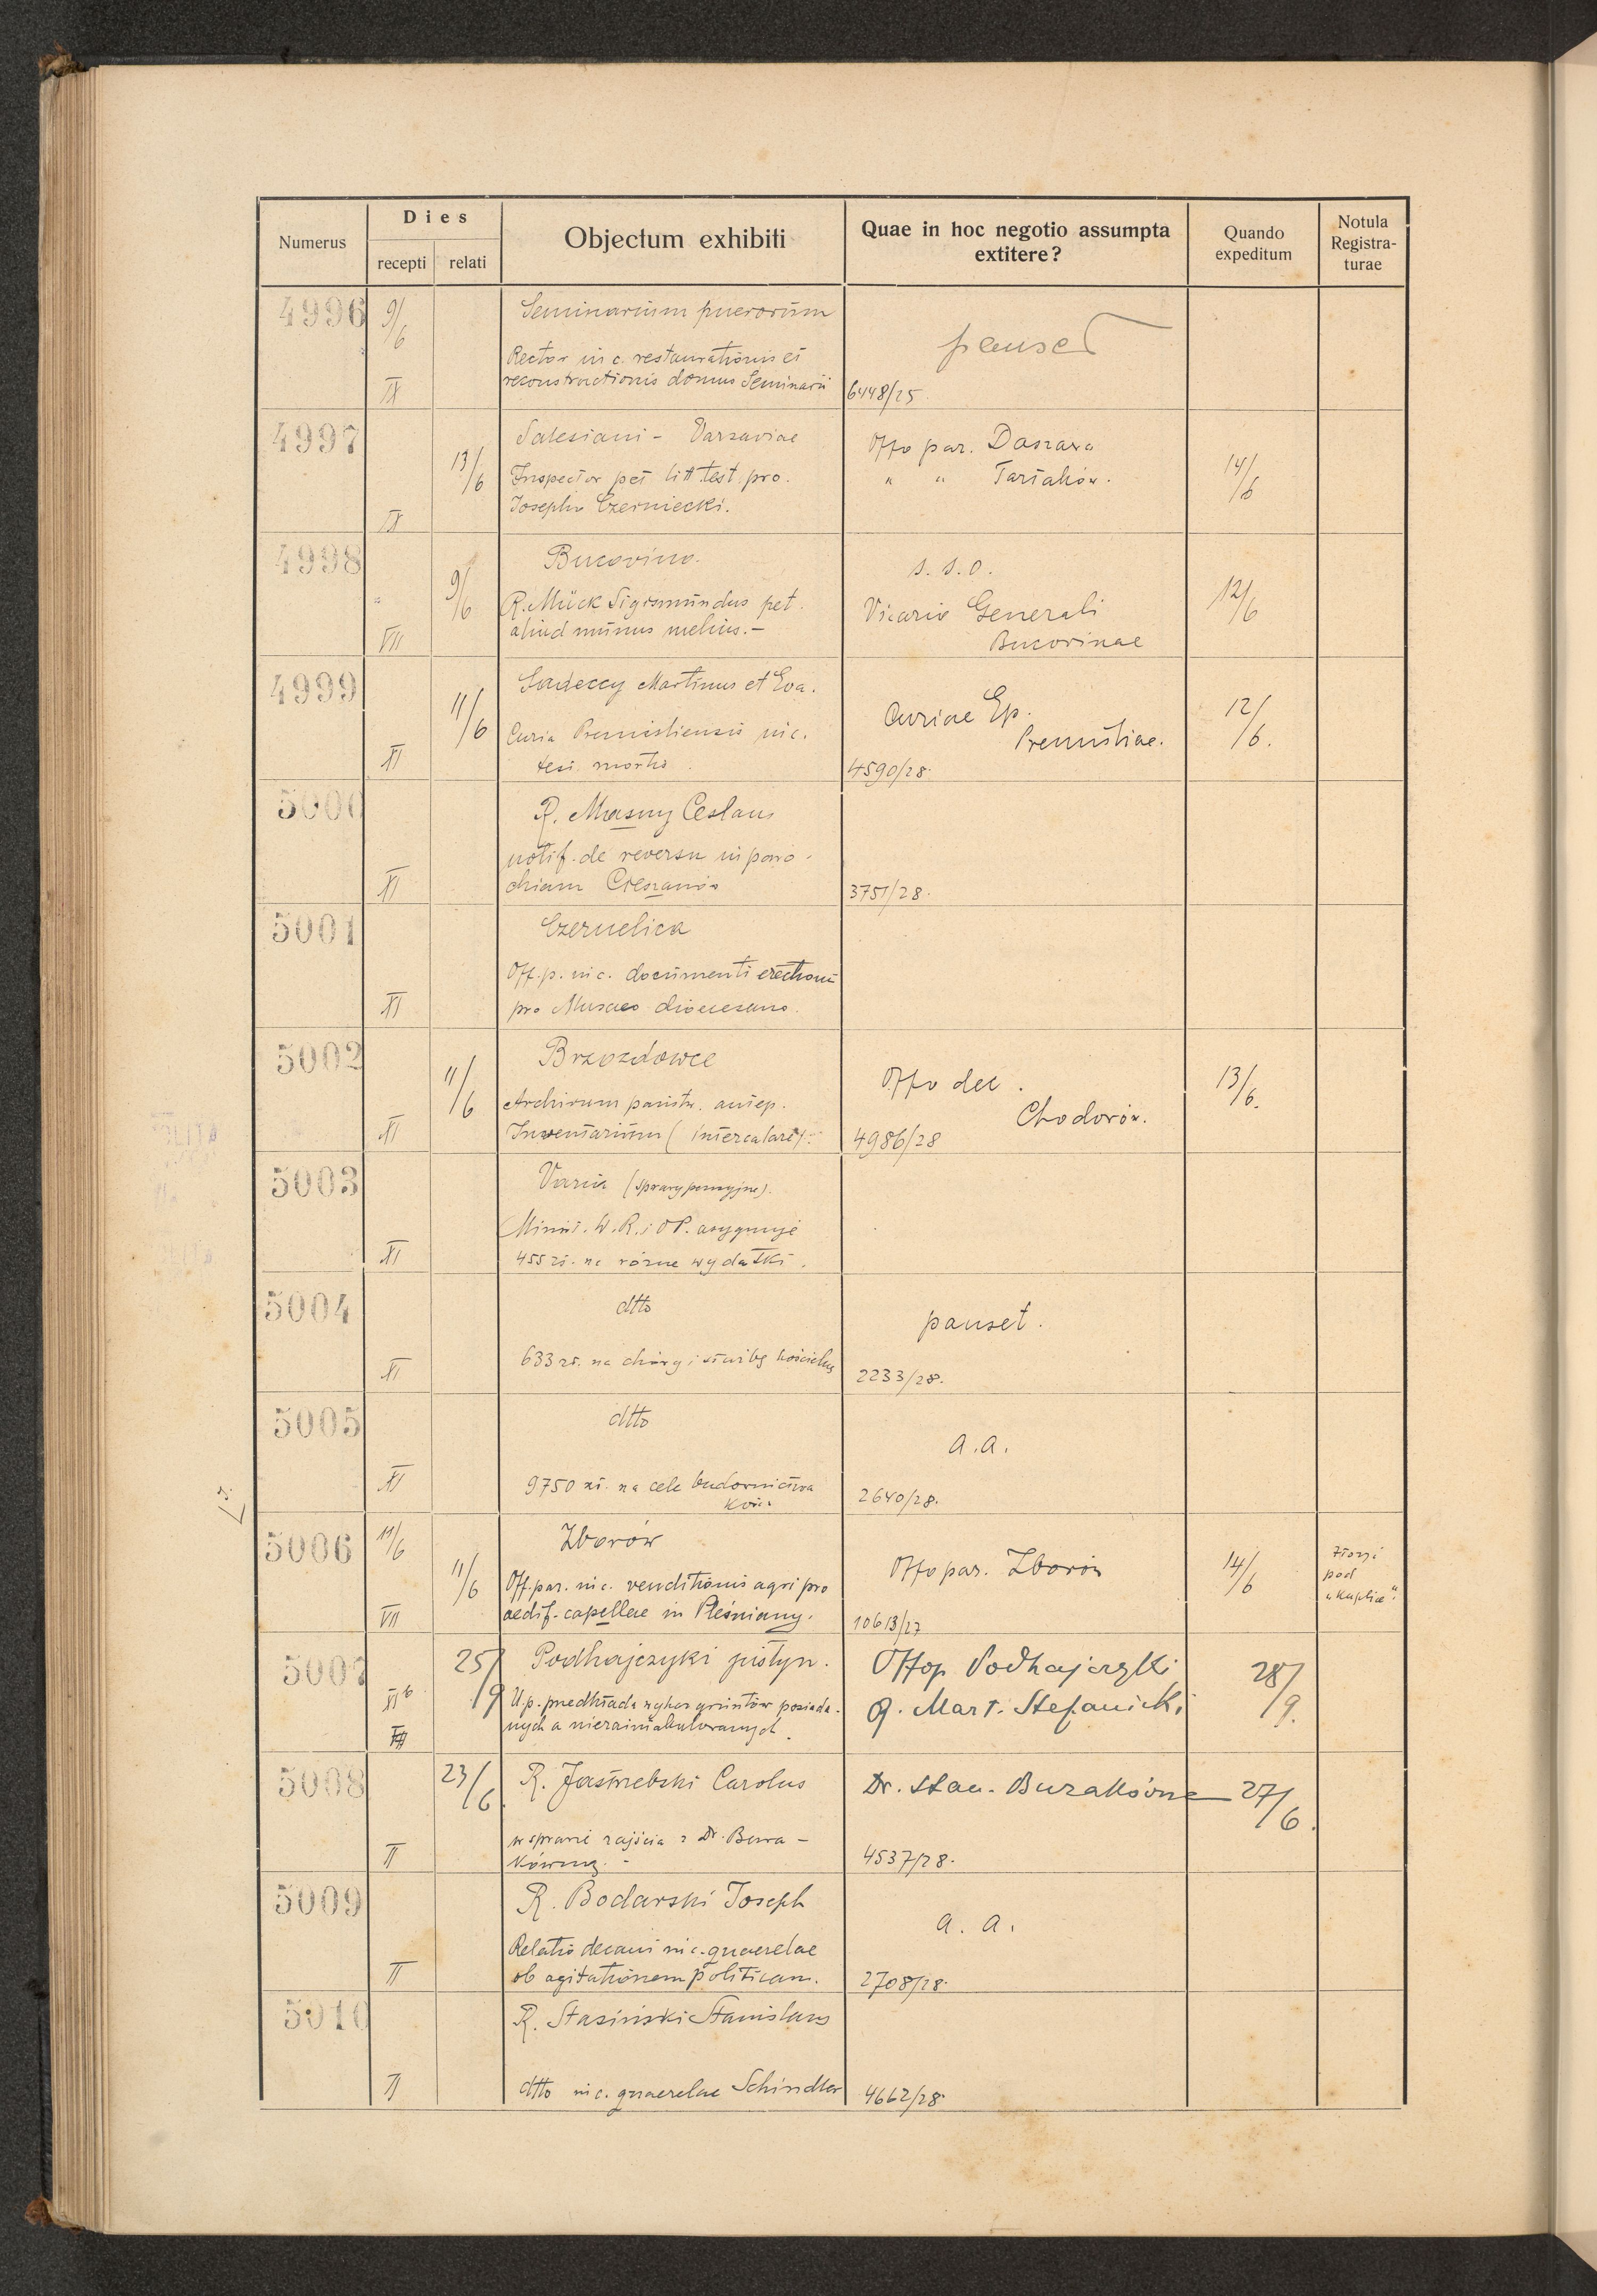 Numerus
Dies
recepti
relati
Objectum exhibiti
Quae in hoc negotio assumpta
extitere?
Quando
expeditum
Notula
Registra-
turae
4996
9/6
IX
Seminarium puerorum
Rector in c. restaurationis et
reconstructionis domus Seminarii
pauset
6448/25
4997
IX
13/6
Salesiani - Varsaviae
Inspector pet litt. test. pro.
Josepho Czerniecki.
Offo par. Daszawa
" " Tartaków.
14/6
4998
"
VII
9/6
Bucovina.
R. Mück Sigismundus pet.
aliud munus melius.-
s. s. o.
Vicario Generali
Bucovinae
12/6
4999
XI
11/6
Sadeccy Martinus et Eva.
Curia Premisliensis in c.
test. mortis
Curiae Ep.
Premisliae.
4590/28.
12/6.
5000
XI
R. Masny Ceslaus
notif. de reversu in paro-
chiam Cieszanów
3751/28.
5001
XI
Czernelica
Off. p. in c. documenti erectionis
pro Musaeo dioecesano.
5002
XI
11/6
Brzozdowce
Archivum państw. antep.
Inwentarium (intercalare).
Offo dec.
Chodorów.
4986/28
13/6.
5003
XI
Varia (sprawy pensyjne).
Minist. W. R. i O P. asygnuje
455 zł. na różne wydatki.
5004
XI
dtto
633 zł. na chóry i służbę kościelną
pauset.
2233/28.
5005
XI
dtto
9750 zł. na cele budownictwa
kość.
a. a.
2640/28.
5006
11/6
VII
11/6
Zborów
Off. par. in c. venditionis agri pro
aedif. capellae in Pleśniany.
Offo par. Zborów
10613/27
14/6
Złożyć
pod
"Kaplice".
5007
XI b
25/9
Podhajczyki justyn.
U. p. przedkłada wykaz gruntów posiada-
nych a niezaintabulowanych.
Offop Podhajczyki
A. Mart. Stefanicki
28/9.
5008
II
23/6
R. Jastrzebski Carolus
w sprawie zajścia z Dr. Bura-
kówną. -
Dr. Stan. Burakówna
4537/28.
27/6.
5009
II
R. Bodarski Joseph
Relatio decani in c. quaerelae
ob agitationem politicam.
a. a.
2708/28.
5010
II
R. Stasiński Stanislaus
dtto in c. quaerelae Schindler
4662/28.